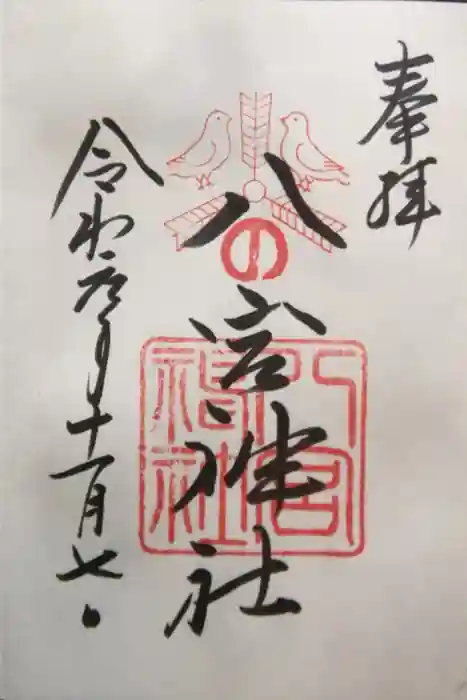 奉拝
八の宮神社
八の宮神社
令和元年十一月七日